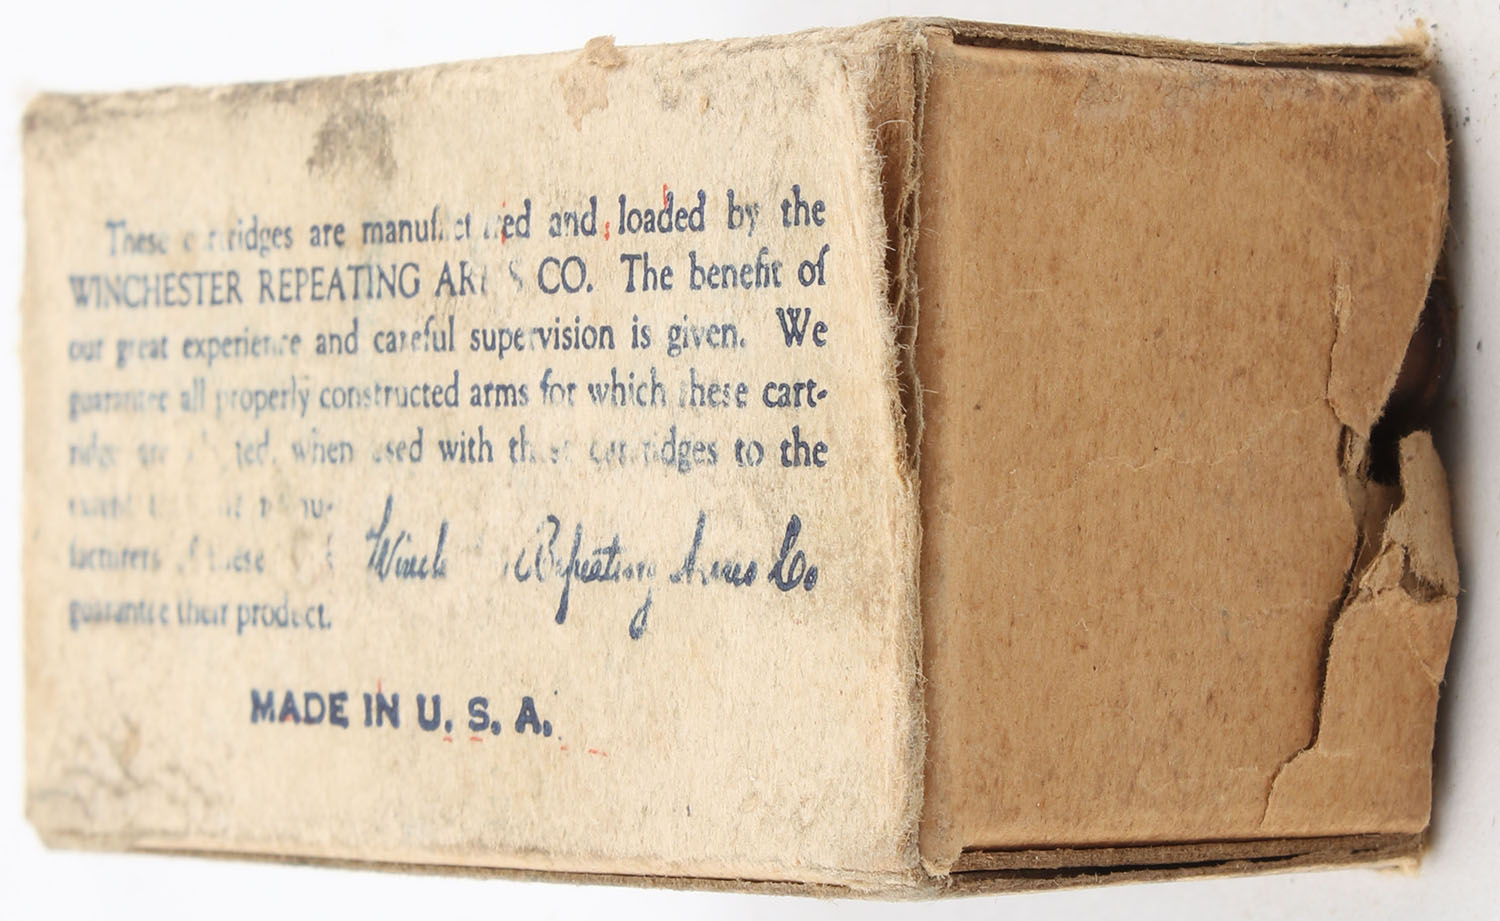 These cartridges are manufactured and loaded by the
WINCHESTER REPEATING ARMS CO. The benefit of
our great experience and careful supervision is given. We
guarantee all properly constructed arms for which these cart-
ridges are ted, when used with these cartridges to the
extent
facturers of these Winch Repeating Arms Co
guarantee their product.
MADE IN U. S. A.